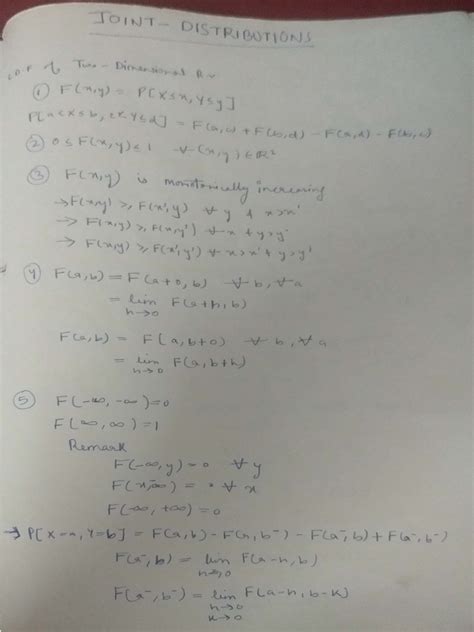 JOINT - DISTRIBUTIONS
C.D.F of Two-Dimensional R.V
① F(x,y) = P[X≤x, Y≤y]
P[a<X≤b, c<Y≤d] = F(a,c) + F(b,d) - F(a,d) - F(b,c)
② 0≤F(x,y)≤1 ∀ (x,y)∈ℝ²
③ F(x,y) is monotonically increasing
→ F(x,y) ≥ F(x',y) ∀ y & x>x'
→ F(x,y) ≥ F(x,y') ∀ x & y>y'
→ F(x,y) ≥ F(x',y') ∀ x>x' & y>y'
④ F(a,b) = F(a+0,b) ∀ b, ∀ a
= lim F(a+h,b)
h→0
F(a,b) = F(a,b+0) ∀ b, ∀ a
= lim F(a,b+h)
h→0
⑤ F(-∞,-∞)=0
F(∞,∞)=1
Remark
F(-∞,y)=0 ∀ y
F(x,-∞) = 0 ∀ x
F(-∞,+∞)=0
→ P[X=a,Y=b] = F(a,b) - F(a,b⁻) - F(a⁻,b) + F(a⁻,b⁻)
F(a⁻,b) = lim F(a-h,b)
h→0
F(a⁻,b⁻) = lim F(a-h,b-k)
h→0
k→0